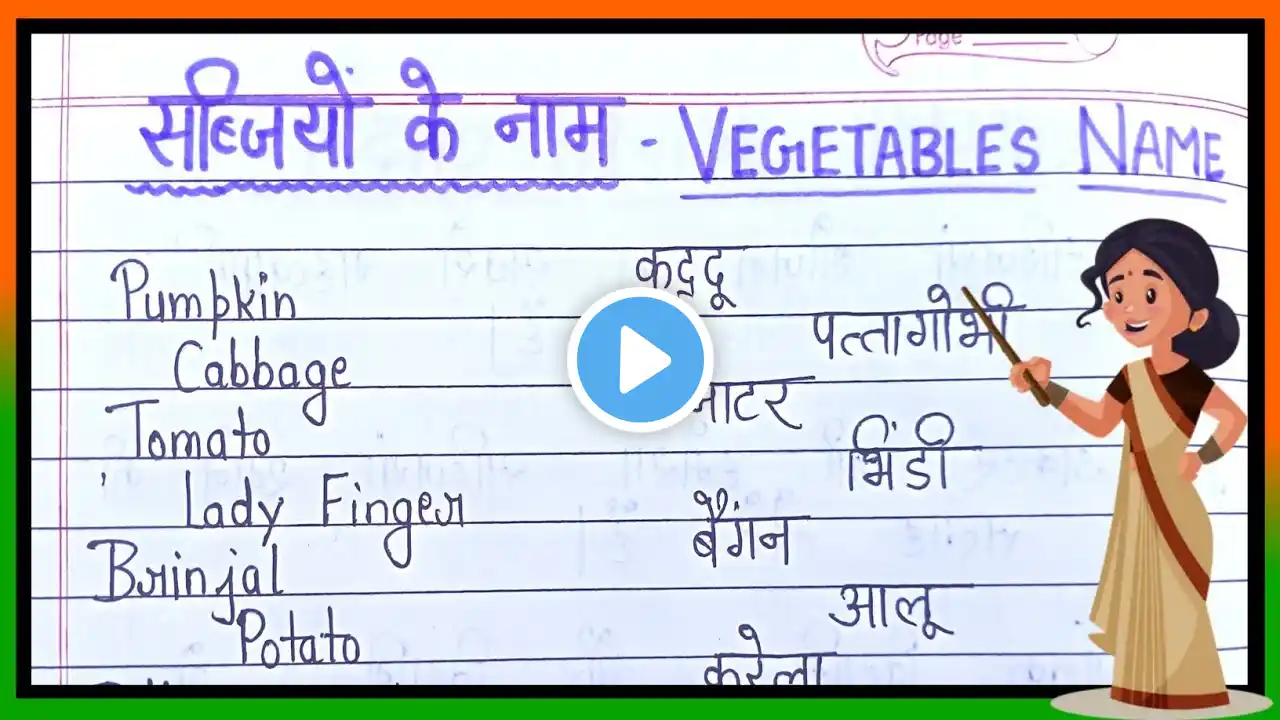 Page
सब्जियों के नाम - VEGETABLES NAME
Pumpkin कद्दू
Cabbage पत्तागोभी
Tomato
Lady Finger भिंडी
Brinjal बैंगन
Potato आलू
करेला